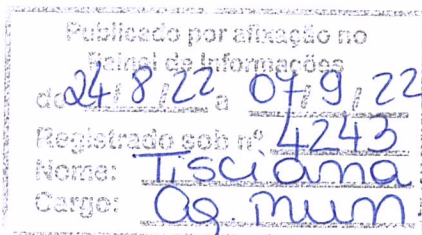 Publicado por afixação no
Painel de Informações
de 24/8/22 a 07/9/22
Registrado sob nº 4243
Nome: Tisciana
Cargo: Ag. mun.